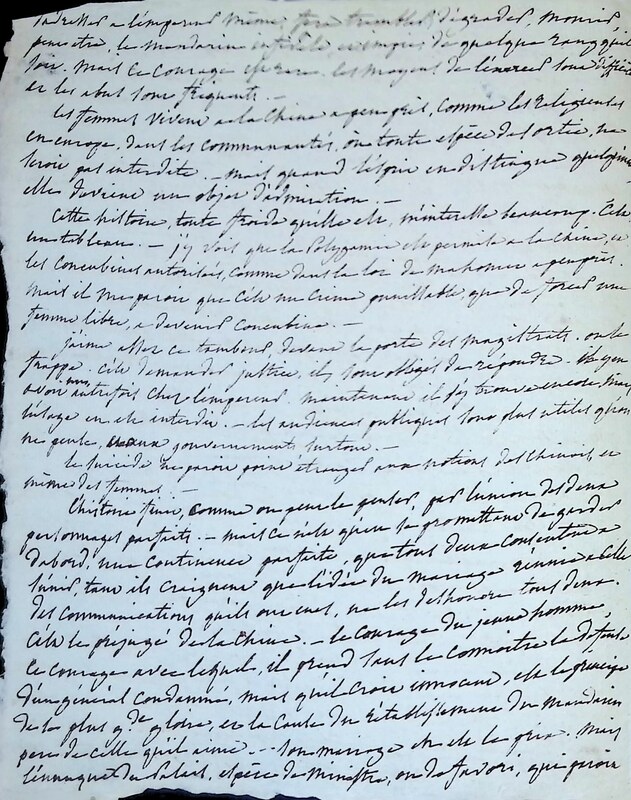 s'adresser a l'empereur même, fera trembler, dégrader, mourir
peut etre, le mandarin infidèle ou inique de quelque rang qu'il
soit. mais ce courage est rare, les moyens de l'exercer sont difficiles
et les abus sont fréquents. —
les femmes vivent a la Chine a peu près, comme les religieuses
en europe, dans les communautés, où toute espèce de sortie, ne
seroit pas interdite. — mais quand on en distingue quelqu'une
elle devient un objet d'admiration. —
Cette histoire, toute froide qu'elle est, m'interesse beaucoup. C'est
un tableau. — j'y vois que la Polygamie est permise a la Chine, et
les Concubines autorisées, comme dans la loi de mahomet a peu près.
mais il me paroit que c'est un Crime punissable, que de forcer une
femme libre, a devenir Concubine. —
j'aime assez ce tambour devant la porte des magistrats. on le
frappe. C'est demander justice, ils sont obligés de repondre. il y en
avoit un autrefois chez l'empereur. maintenant il s'y trouve encore, mais
l'usage en est interdit. — les audiences publiques sont plus utiles qu'on
ne pense, aux gouvernements surtout. —
le suicide ne paroit point étranger aux notions des chinois, et
même des femmes. —
l'histoire finit, comme on peut le penser, par l'union des deux
personnages parfaits. — mais ce n'est qu'en se promettant de garder
d'abord, une continence parfaite, que tous deux consentent a
s'unir, tant ils craignent que l'idée du mariage réunie a celle
des communications qu'ils ont eues, ne les deshonore tous deux.
C'est le prejugé de la Chine. — le courage du jeune homme,
ce courage avec lequel, il prend sans le connoitre la defense
d'un général condamné, mais qu'il croit innocent, est le principe
de la plus g.de gloire, et la cause du rétablissement du mandarin
pere de celle qu'il aime. — son mariage en est le prix. mais
l'eunuque du Palais, espèce de ministre, ou de favori, qui paroit